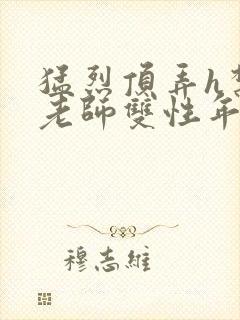 猛烈頂弄h
老師雙性年
穆志維